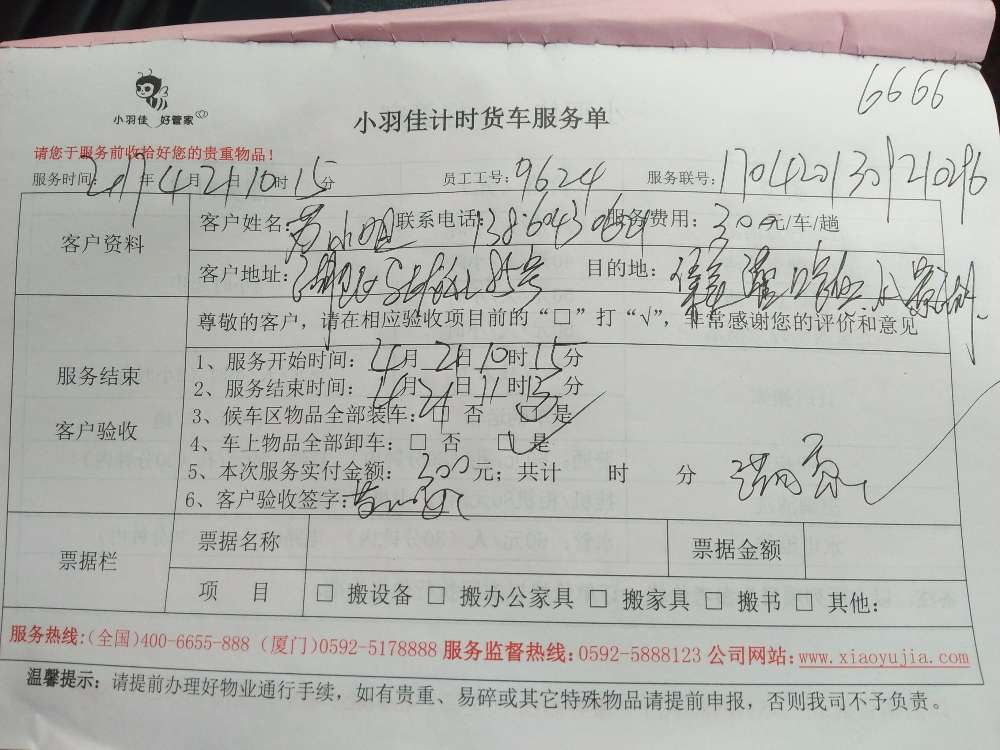 6666
小羽佳 好管家
小羽佳计时货车服务单
请您于服务前收拾好您的贵重物品!
服务时间: 2017年4月21日10时15分 员工工号: 9624 服务联号: 170420130921026
客户资料
客户姓名: 黄小姐 联系电话: 服务费用: 300元/车/趟
客户地址: 85号 目的地:
尊敬的客户,请在相应验收项目前的“□”打“√”,非常感谢您的评价和意见
服务结束
客户验收
1、服务开始时间: 4月21日10时15分
2、服务结束时间: 4月21日11时15分
3、候车区物品全部装车: □ 否 □ 是
4、车上物品全部卸车: □ 否 □ 是
5、本次服务实付金额: 300元; 共计 时 分
6、客户验收签字:
票据栏
票据名称 票据金额
项 目 □ 搬设备 □ 搬办公家具 □ 搬家具 □ 搬书 □ 其他:
服务热线:(全国)400-6655-888 (厦门)0592-5178888 服务监督热线:0592-5888123 公司网站:www.xiaoyujia.com
温馨提示: 请提前办理好物业通行手续,如有贵重、易碎或其它特殊物品请提前申报,否则我司不予负责。